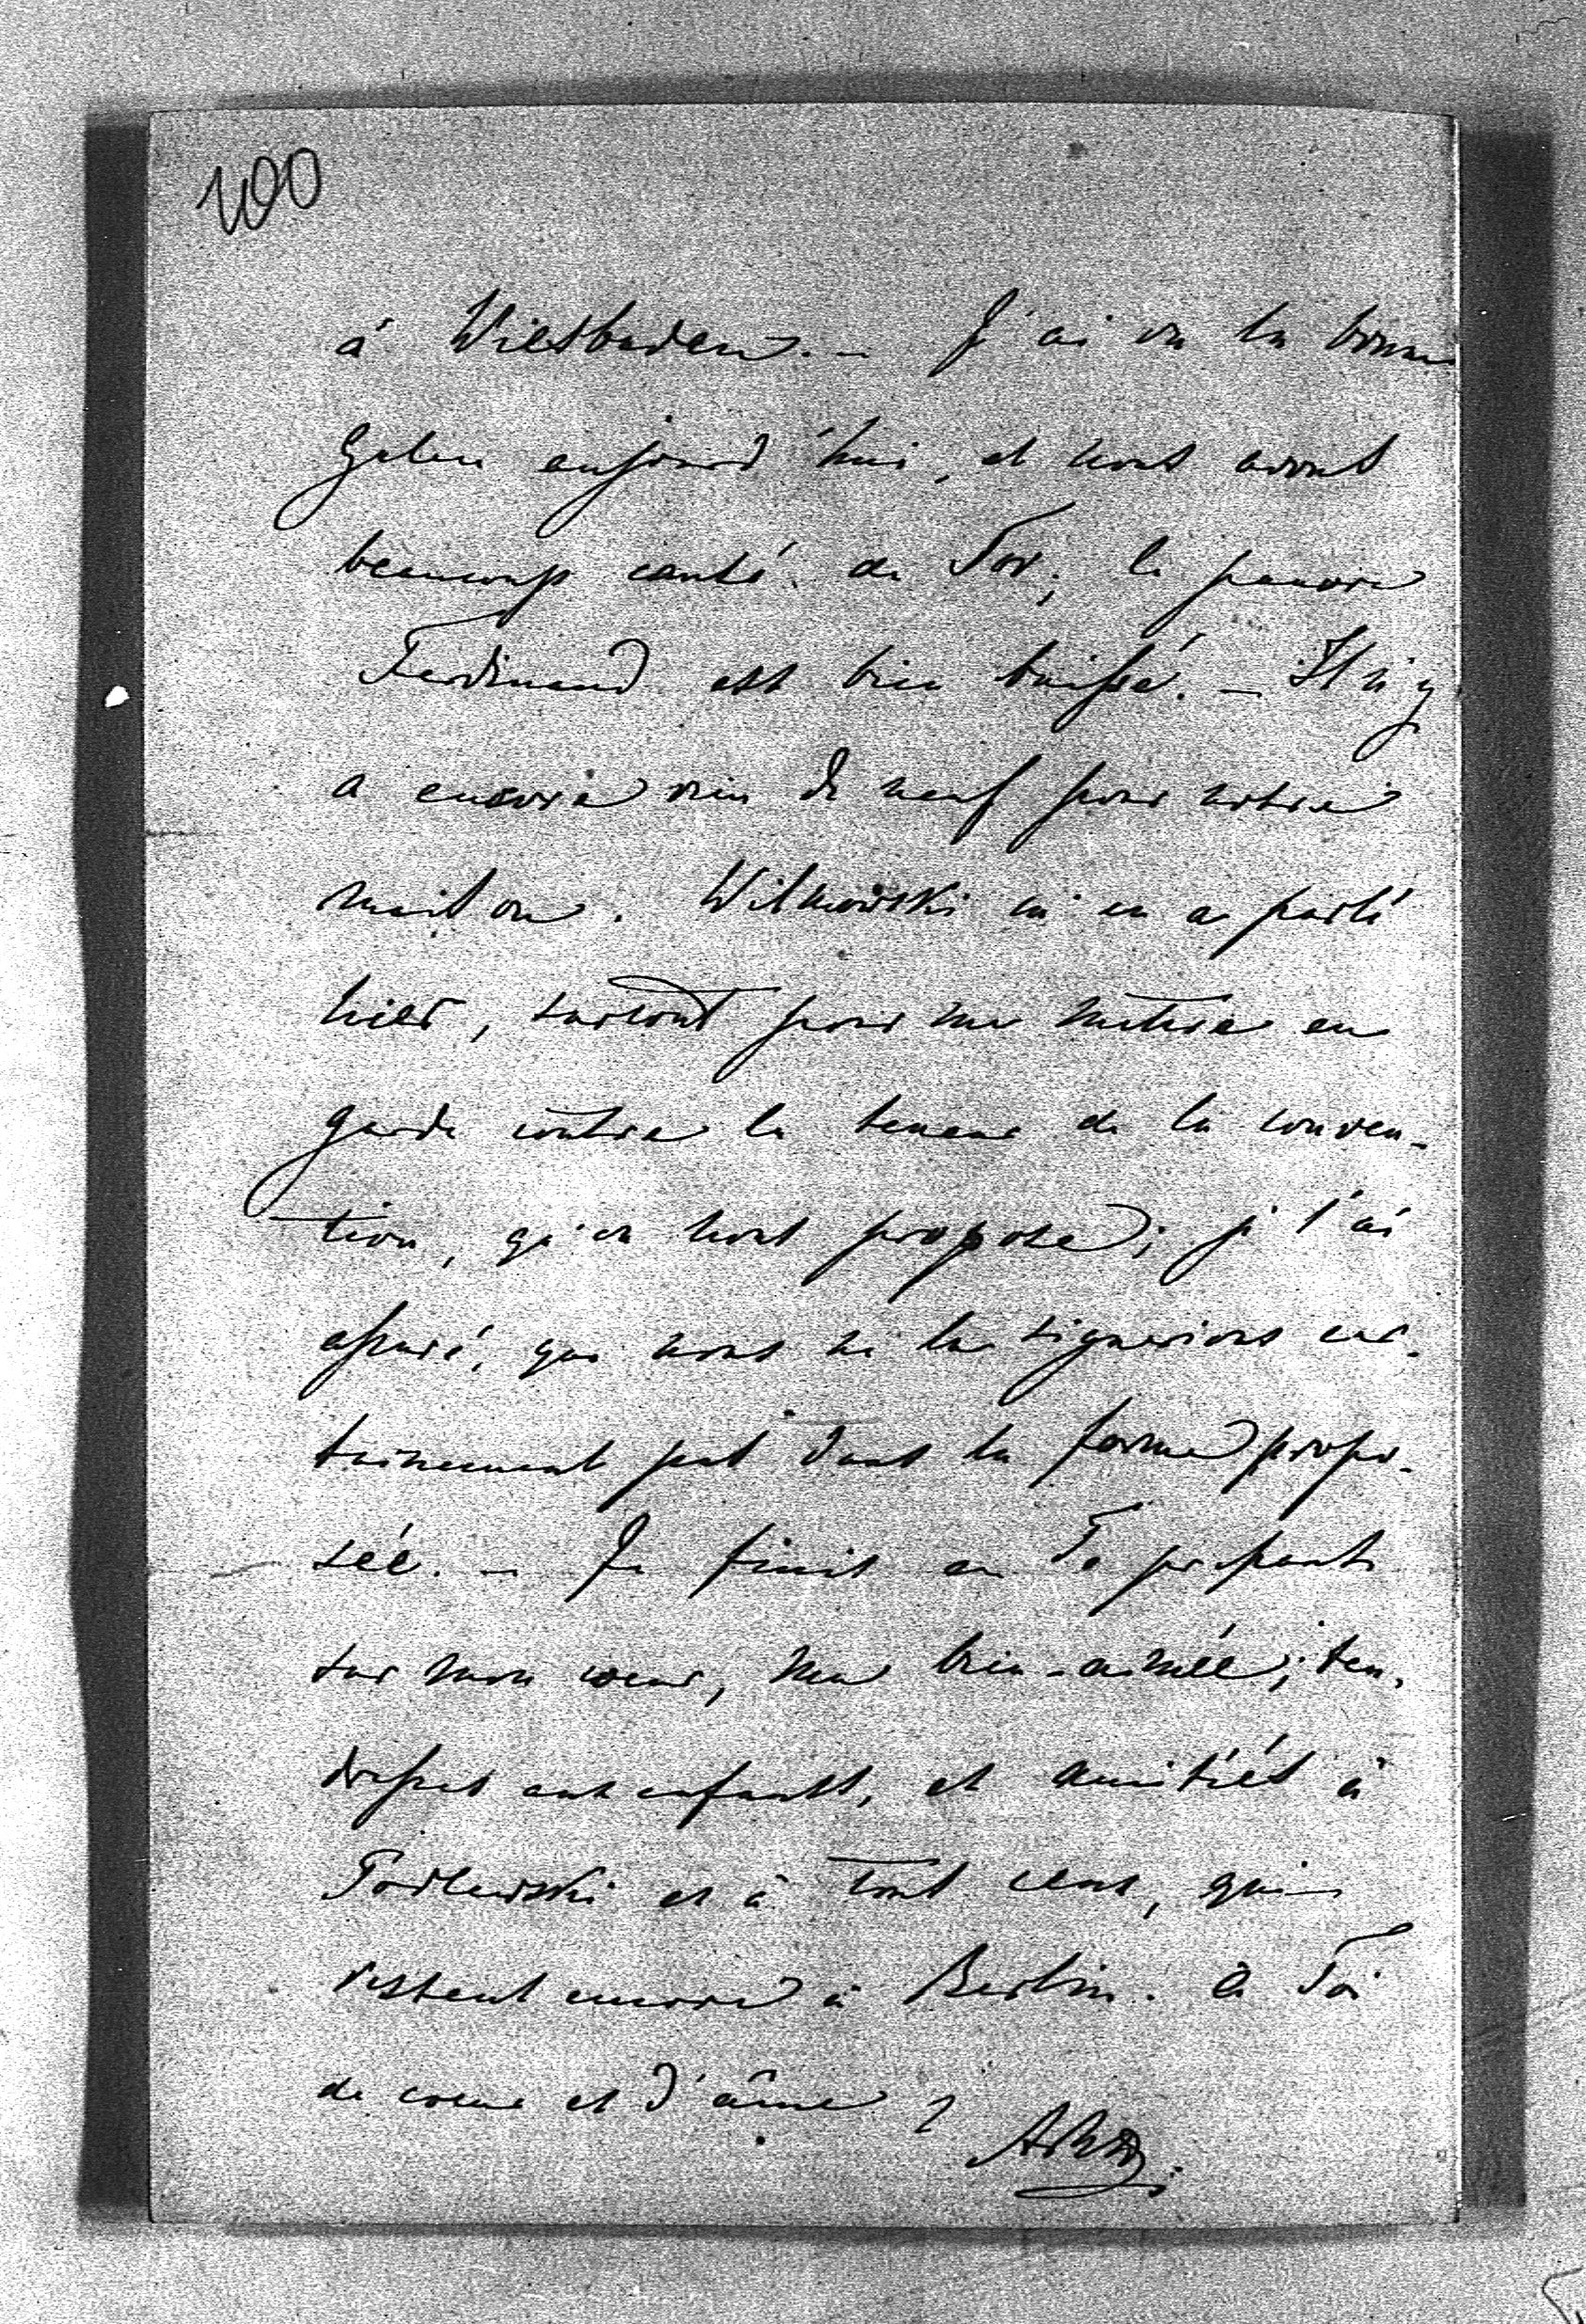 100
à Wiesbaden. – J'ai vu la bonne
aujourd'hui, et nous avons
beaucoup causé de Toi; le pauvre
Ferdinand est bien baissé. – Il n'y
a encore rien de neuf pour notre
maison. Wilmowski m'en a parlé
hier, surtout pour me mettre en
garde contre la teneur de la conven-
tion, qu'on nous propose; je l'ai
assuré, que nous ne la signerions cer-
tainement pas dans la forme propo-
sée. – Je finis en Te pressant
sur mon coeur, ma bien-aimée; ten-
dresses aux enfants, et amitiés à
Podlewski et à tous ceux, qui
restent encore à Berlin. à Toi
de coeur et d'âme